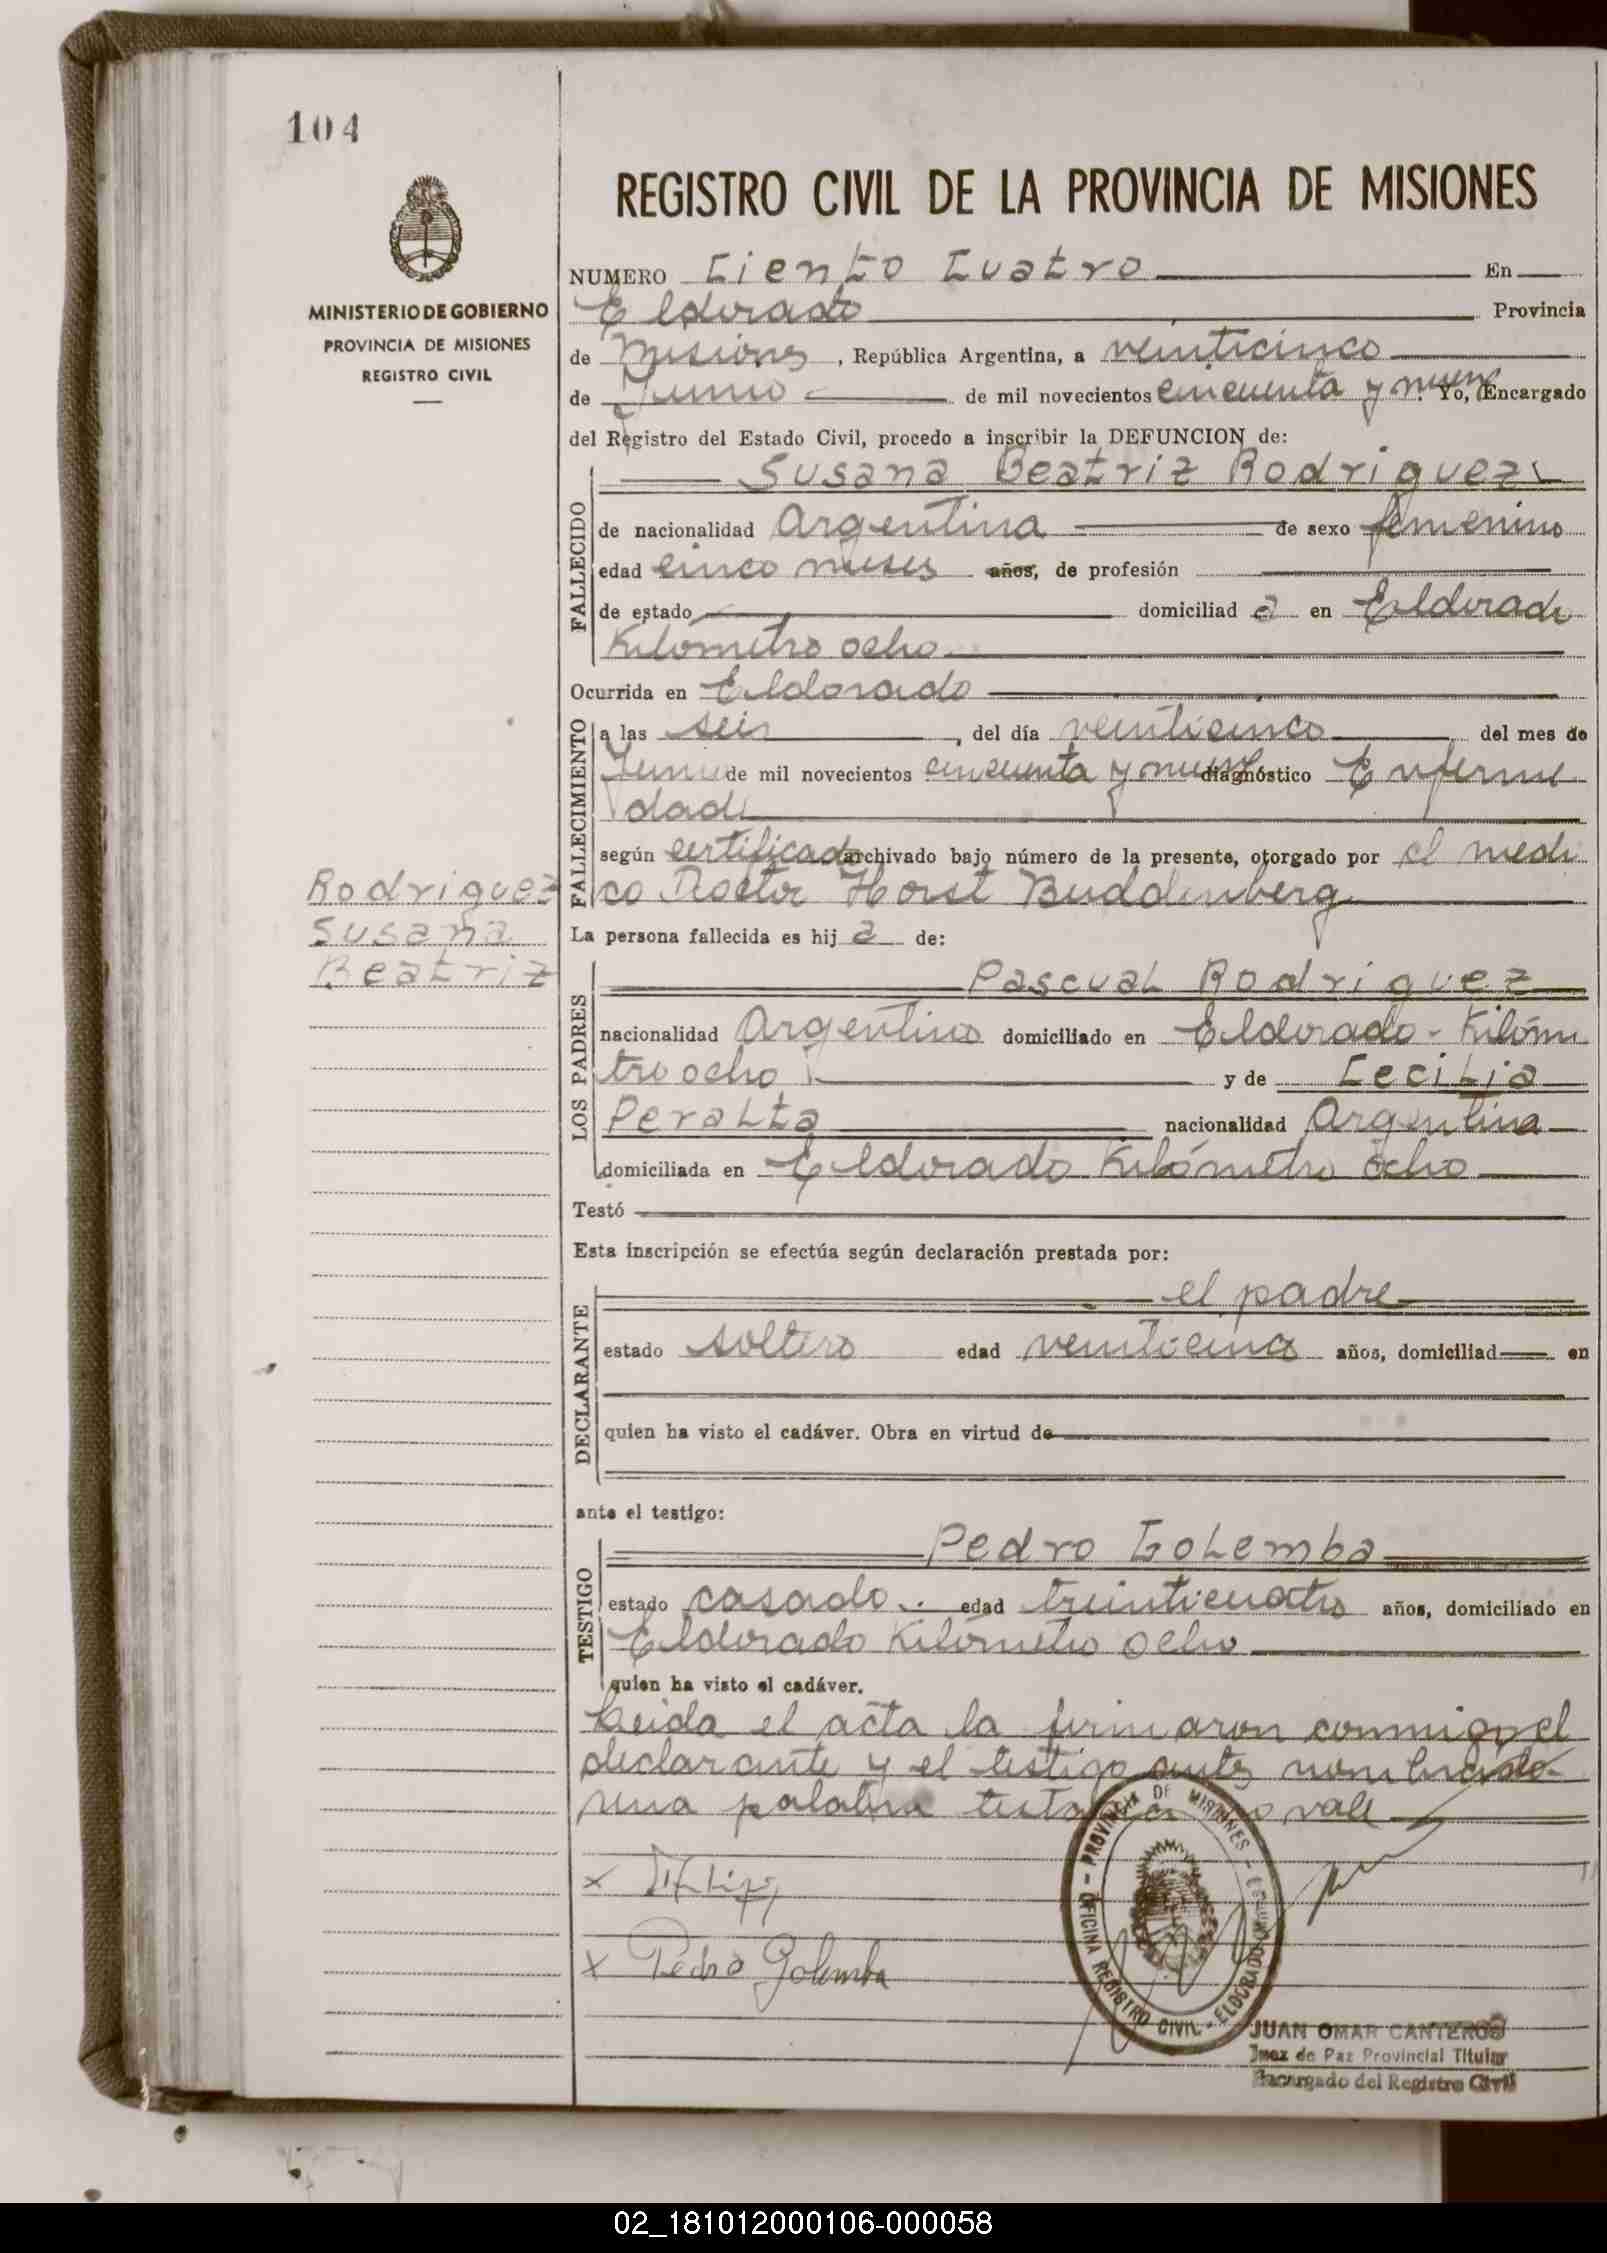 104
MINISTERIO DE GOBIERNO
PROVINCIA DE MISIONES
REGISTRO CIVIL
REGISTRO CIVIL DE LA PROVINCIA DE MISIONES
NUMERO Ciento Cuatro En
Eldorado Provincia
de Misiones, República Argentina, a veinticinco
de Junio de mil novecientos cincuenta y nueve Yo, Encargado
del Registro del Estado Civil, procedo a inscribir la DEFUNCION de:
FALLECIDO
Susana Beatriz Rodriguez
de nacionalidad Argentina de sexo femenino
edad cinco meses años, de profesión
de estado domiciliad a en Eldorado
Kilómetro ocho
Ocurrida en Eldorado
FALLECIMIENTO
a las seis, del día veinticinco del mes de
Junio de mil novecientos cincuenta y nueve diagnóstico Enferme
dad
según certificado archivado bajo número de la presente, otorgado por el medi
co Doctor Horst Buddenberg
Rodriguez
Susana
Beatriz
La persona fallecida es hij a de:
LOS PADRES
Pascual Rodriguez
nacionalidad Argentino domiciliado en Eldorado - Kilóme
tro ocho y de Cecilia
Peralta nacionalidad Argentina
domiciliada en Eldorado Kilómetro ocho
Testó
Esta inscripción se efectúa según declaración prestada por:
DECLARANTE
el padre
estado soltero edad veinticinco años, domiciliad en
quien ha visto el cadáver. Obra en virtud de
ante el testigo:
TESTIGO
Pedro Golemba
estado casado. edad treinticuatro años, domiciliado en
Eldorado Kilómetro ocho
quien ha visto el cadáver.
Leida el acta la firmaron conmigo el
declarante y el testigo antes nombrado-
una palabra testada no vale
x
x Pedro Golemba
PROVINCIA DE MISIONES - OFICINA REGISTRO CIVIL - ELDORADO
JUAN OMAR CANTEROS
Juez de Paz Provincial Titular
Encargado del Registro Civil
02_181012000106-000058